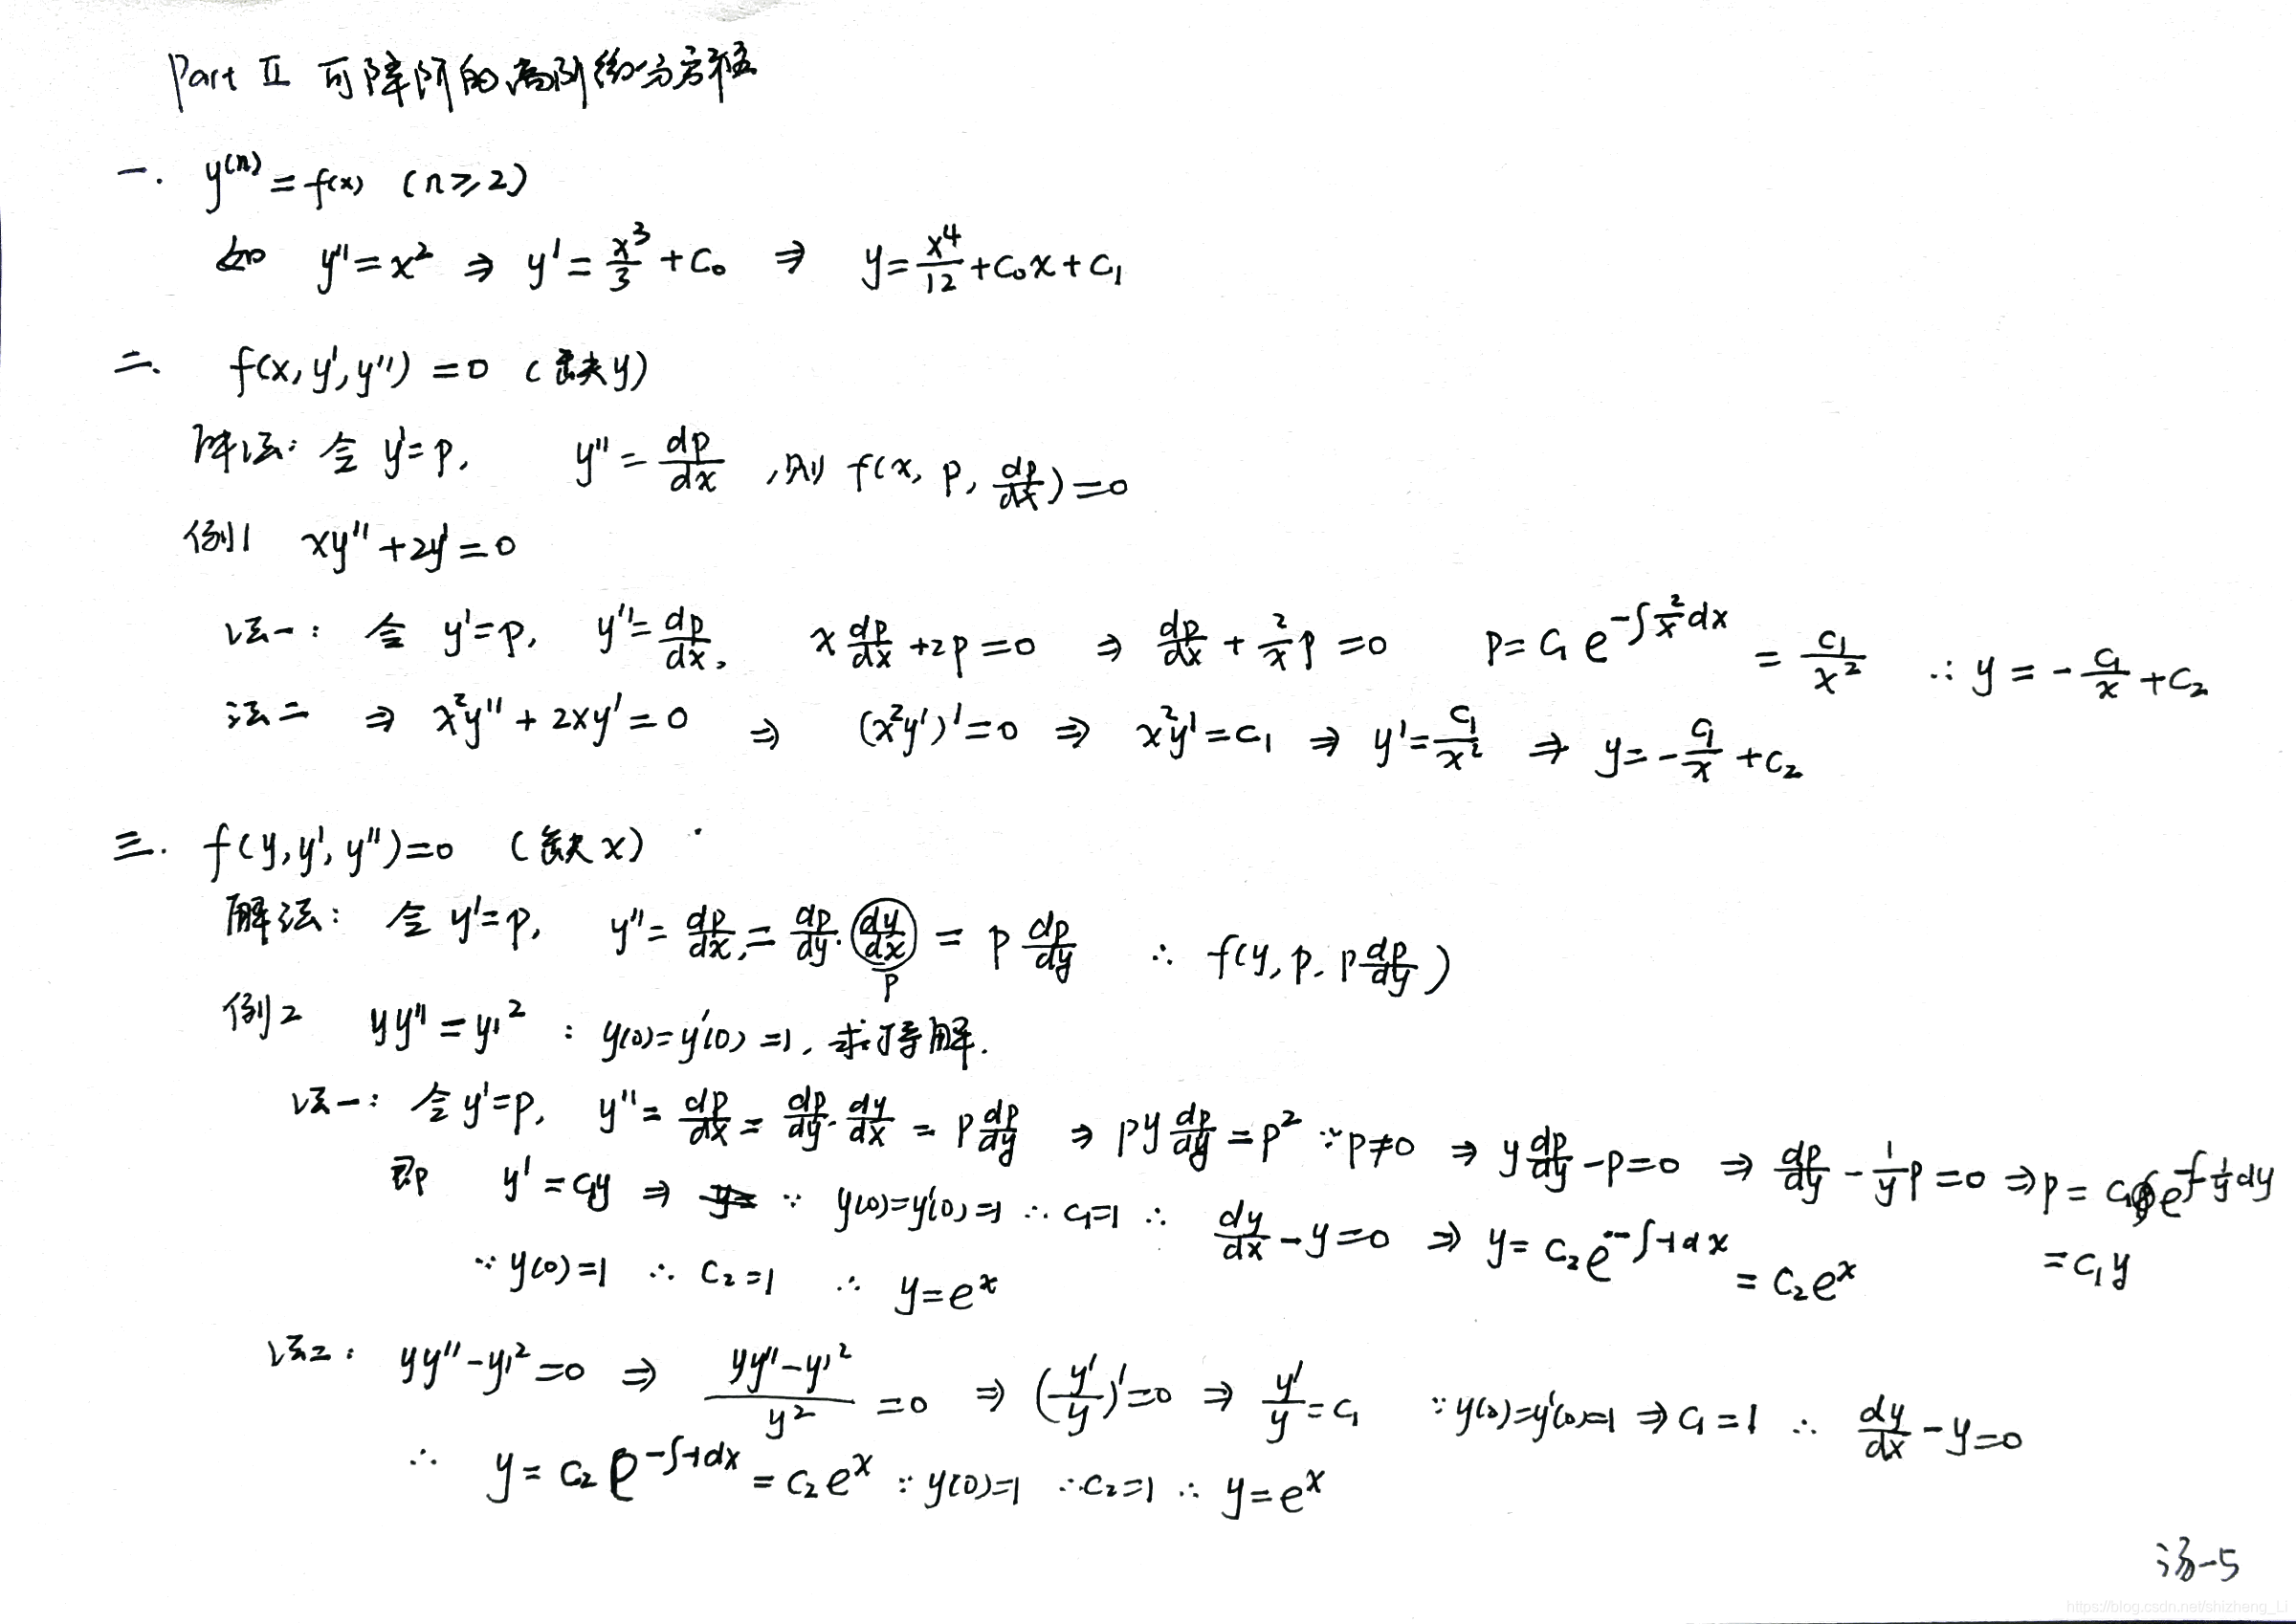 Part Ⅱ 可降阶的高阶微分方程
一. y⁽ⁿ⁾ = f(x) (n≥2)
如 y'' = x² ⇒ y' = x³/3 + C₀ ⇒ y = x⁴/12 + C₀x + C₁
二. f(x, y', y'') = 0 (缺y)
解法: 令 y' = p, y'' = dp/dx , 则 f(x, p, dp/dx) = 0
例1 xy'' + 2y' = 0
法一: 令 y' = p, y'' = dp/dx, x dp/dx + 2p = 0 ⇒ dp/dx + 2/x p = 0 p = C₁e^(-∫2/x dx) = C₁/x² ∴ y = -C₁/x + C₂
法二 ⇒ x²y'' + 2xy' = 0 ⇒ (x²y')' = 0 ⇒ x²y' = C₁ ⇒ y' = C₁/x² ⇒ y = -C₁/x + C₂
三. f(y, y', y'') = 0 (缺x)
解法: 令 y' = p, y'' = dp/dx = dp/dy · dy/dx = p dp/dy ∴ f(y, p, p dp/dy)
p
例2 yy'' = y'² : y(0) = y'(0) = 1, 求特解.
法一: 令 y' = p, y'' = dp/dx = dp/dy · dy/dx = p dp/dy ⇒ py dp/dy = p² ∵ p≠0 ⇒ y dp/dy - p = 0 ⇒ dp/dy - 1/y p = 0 ⇒ p = C₁e^(-∫-1/y dy)
= C₁y
即 y' = C₁y ⇒ ∵ y(0) = y'(0) = 1 ∴ C₁ = 1 ∴ dy/dx - y = 0 ⇒ y = C₂e^(-∫-1dx) = C₂eˣ
∵ y(0) = 1 ∴ C₂ = 1 ∴ y = eˣ
法二: yy'' - y'² = 0 ⇒ (yy'' - y'²)/y² = 0 ⇒ (y'/y)' = 0 ⇒ y'/y = C₁ ∵ y(0) = y'(0) = 1 ⇒ C₁ = 1 ∴ dy/dx - y = 0
∴ y = C₂e^(-∫-1dx) = C₂eˣ ∵ y(0) = 1 ∴ C₂ = 1 ∴ y = eˣ
汤-5
https://blog.csdn.net/shizheng_Li